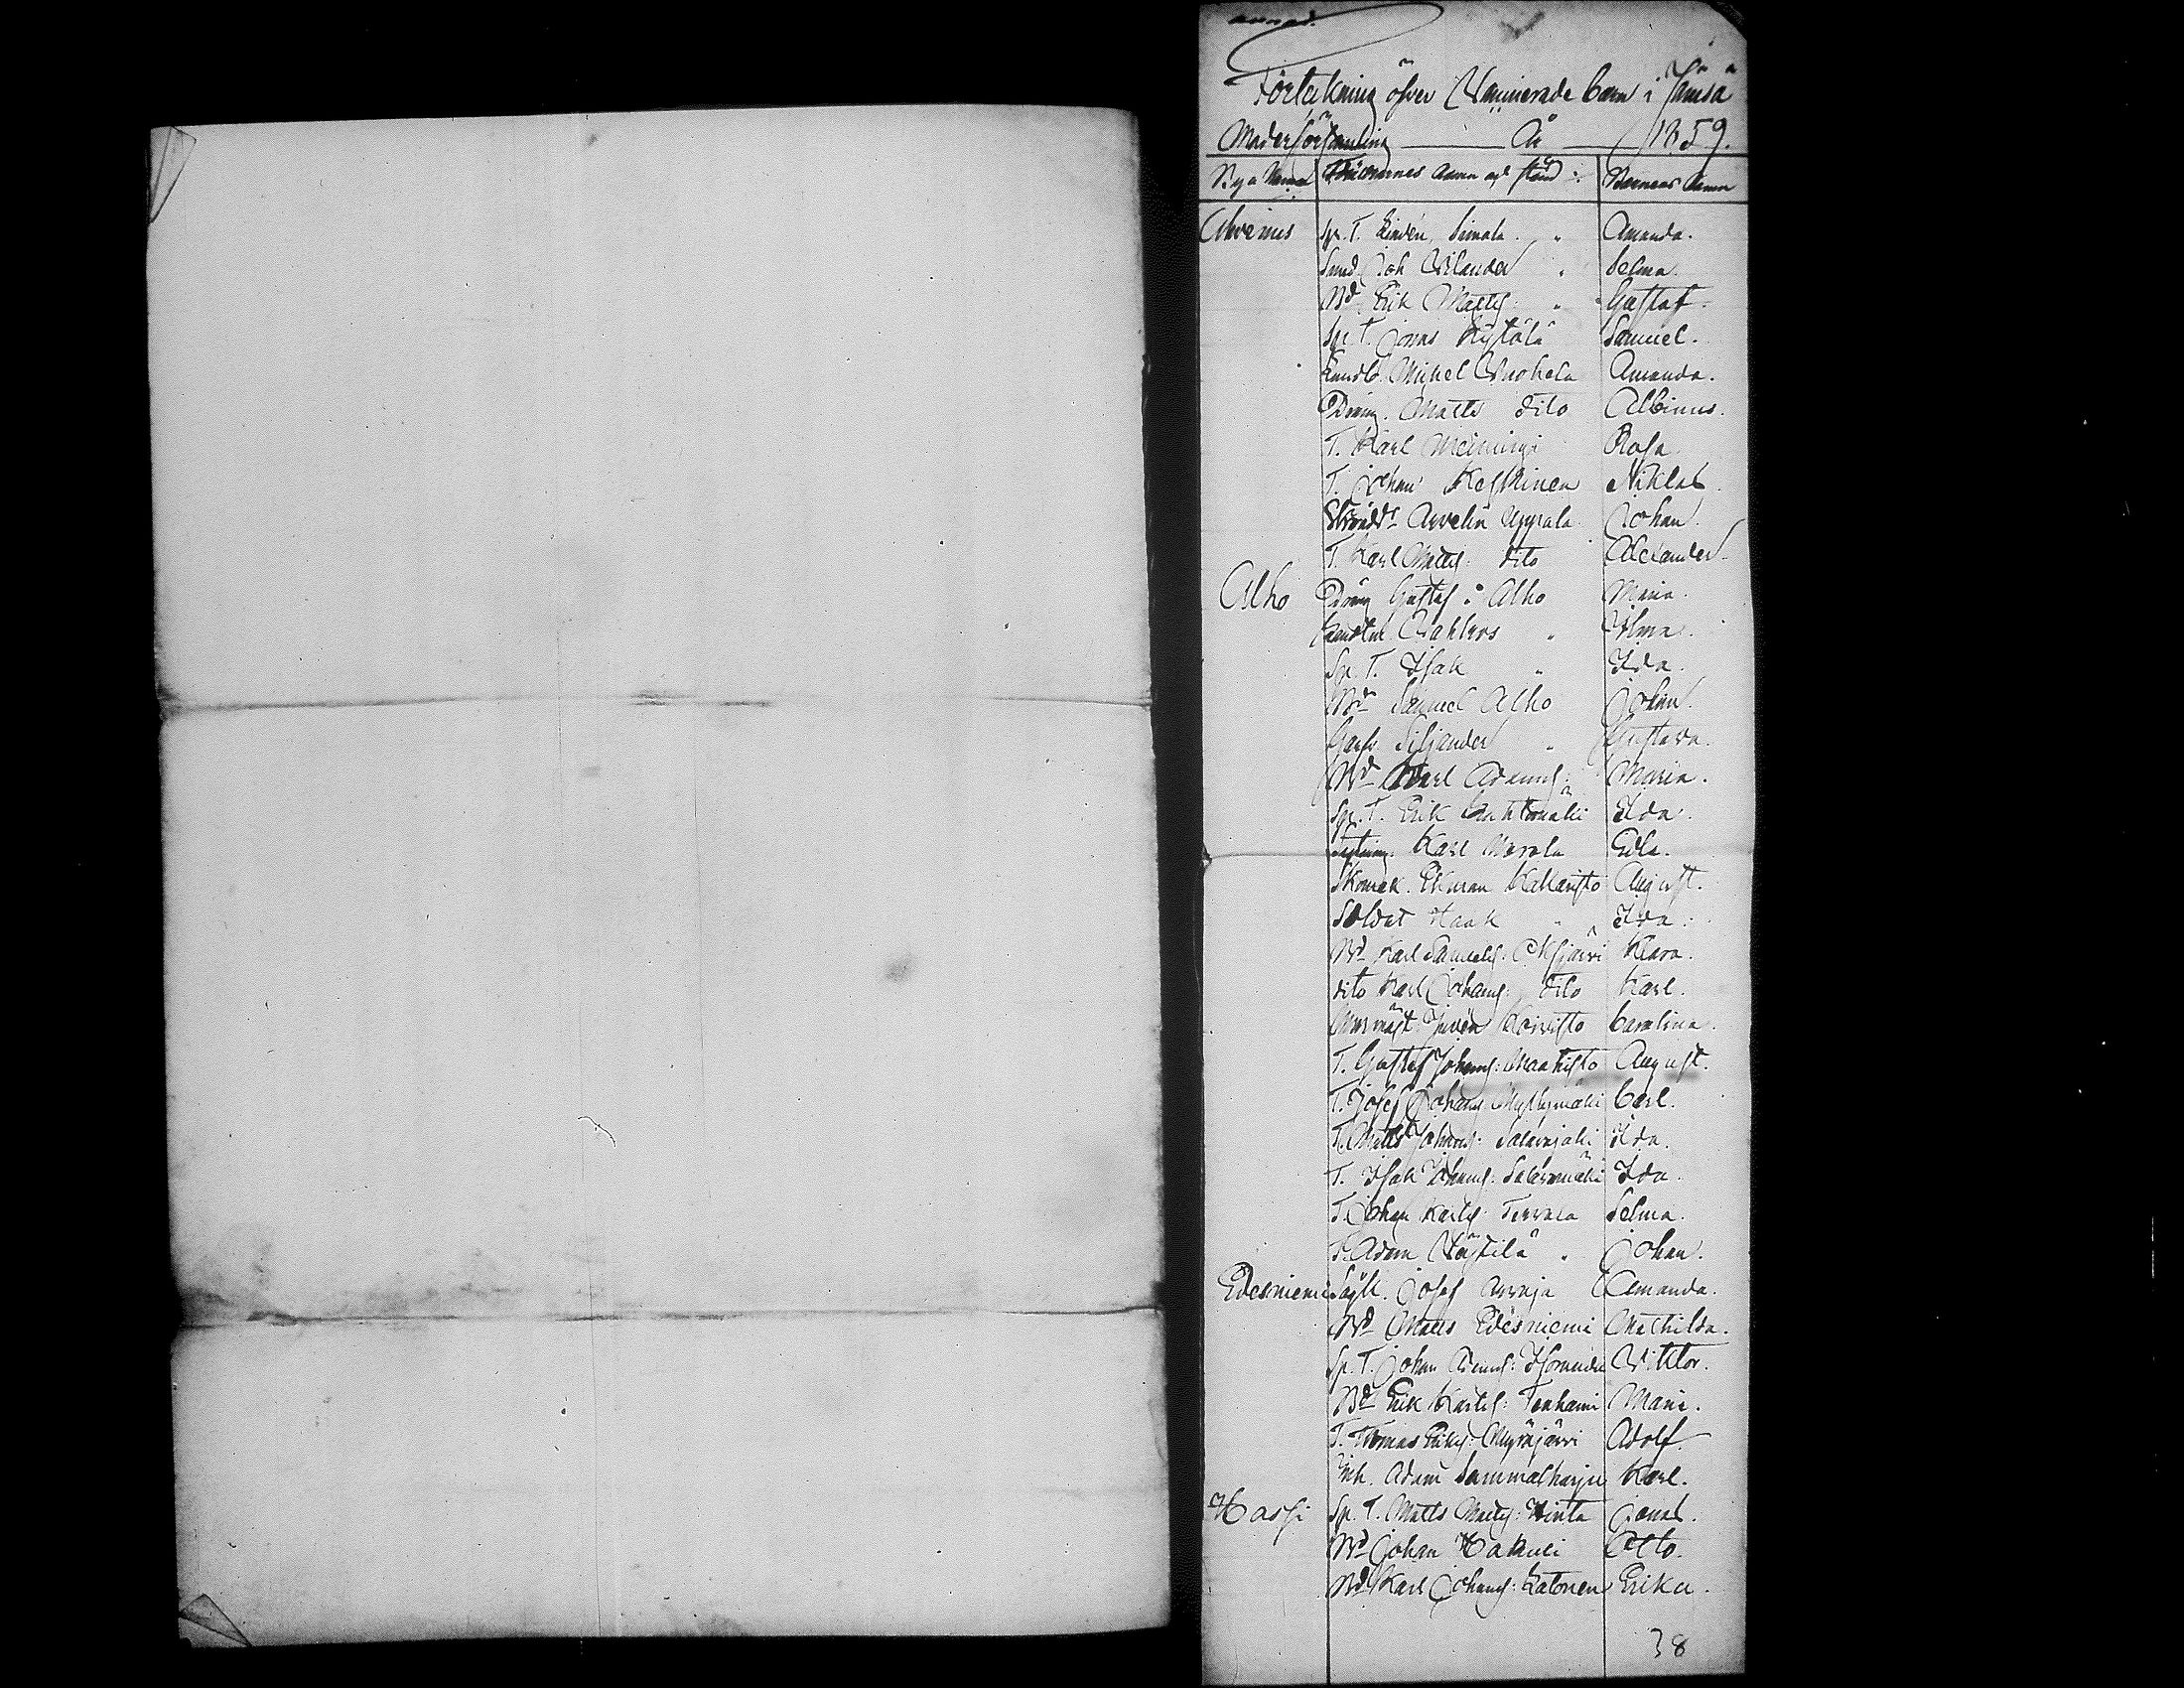 Förtekning öfver Waccinerade barn i Jämsä
Moderförsamling År 1859.
Bya Namn Föräldrarnes namn och stånd: Barnens Namn
Alvenus Sp. T. Lindén, Simola " Amanda.
Smed Joh Vilander " Selma.
Bd Erik Matts: " Gustaf.
Sp. T. Jonas Kystölä Samuel.
Mikel Vuohela Amanda.
Dräng. Matts dito Albinus.
T. Karl Rosa
T. Johan Keskinen Niklas.
Skrädd: Arvelin Uppala Johan.
T. Karl Matts: dito Alexander
Alho Dräng Gustaf å Alho Maria.
Vahlros " Ilma.
Sp. T. Isak " Ida.
Bd Samuel Alho Johan.
Siljander " Gustava.
Bd Karl Adams: Maria.
Sp. T. Erik Ida.
Karl Marola Edla.
Skomak. Ekman Kakaristo August.
Soldat Haak " Ida.
Bd Karl Samuels: Kjärvi Klara.
dito Karl Johans: dito Karl.
Murmäst: Juvén Koivisto Carolina.
T. Gustaf Johans: Maahisto August.
T. Josef Johans: Myllymäki Carl.
T. Matts Johans: Salavajaki Ida.
T. Isak Johans: Salavamäki Ida.
T. Johan Karls: Tervala Selma.
T. Adam Hästilä " Johan.
Edesniemi Josef Arvaja Amanda.
Bd Matts Edesniemi Mathilda.
Sp. T. Johan Adams: Viktor.
Bd Erik Karls: Tenhami Maria.
T. Tomas Eriks: Myräjärvi Adolf.
Inh. Adam Sammalharju Karl.
Hassi Sp. T. Matts Matts: Hinta Jonas.
Bd Johan Hakuli Otto.
Bd Karl Johans: Latonen Erika.
38